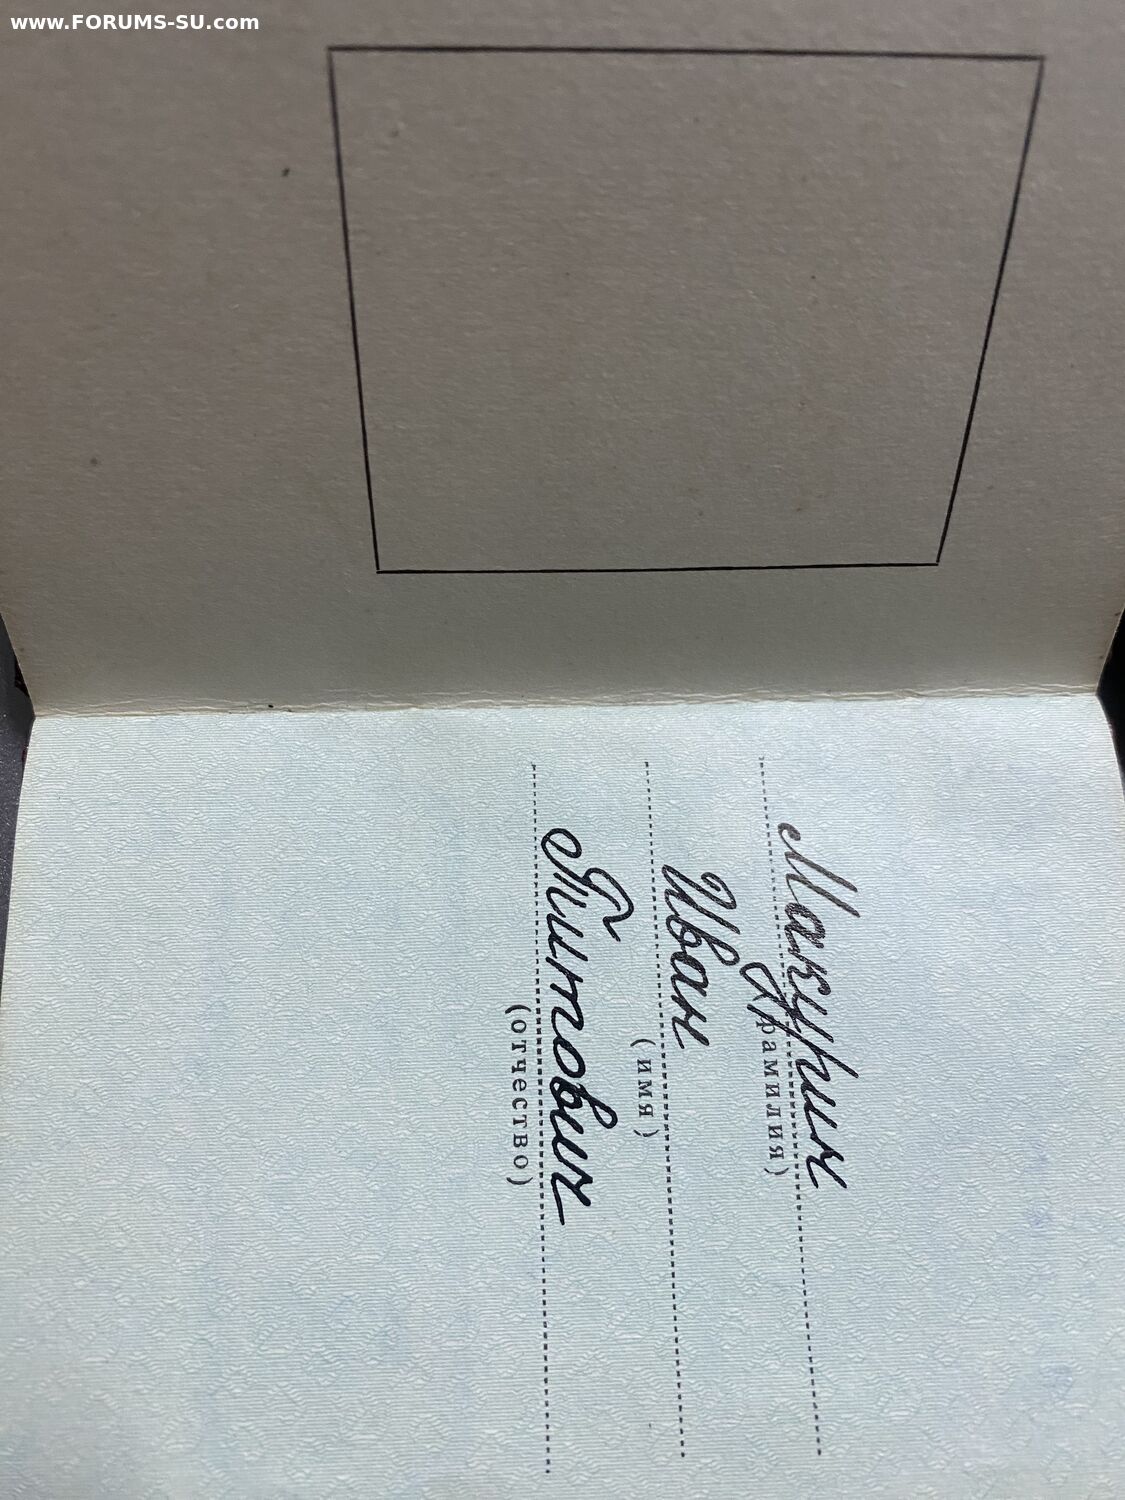 www.FORUMS-SU.com
Макушин
(фамилия)
Иван
(имя)
Титович
(отчество)